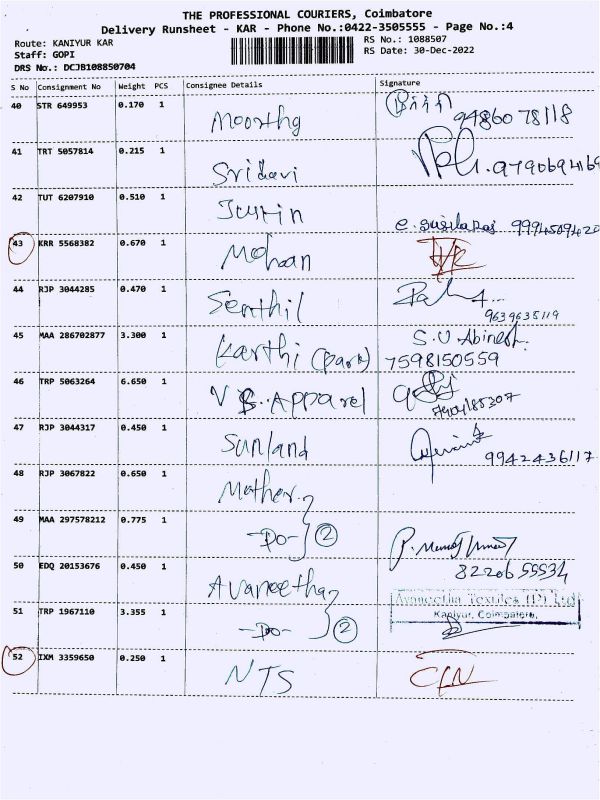 THE PROFESSIONAL COURIERS, Coimbatore
Delivery Runsheet - KAR - Phone No.:0422-3505555 - Page No.:4
Route: KANIYUR KAR
Staff: GOPI
DRS No.: DCJB108850704
RS No.: 1088507
RS Date: 30-Dec-2022
S No Consignment No Weight PCS Consignee Details Signature
40 STR 649953 0.170 1 Moorthy 9486078118
41 TRT 5057814 0.215 1 Sridevi
42 TUT 6207910 0.510 1 Justin 9994509420
43 KRR 5568382 0.670 1 Mohan
44 RJP 3044285 0.470 1 Senthil
9639635119
45 MAA 286702877 3.300 1 Karthi (park) S.U.Abinesh
7598150559
46 TRP 5063264 6.650 1 V S. Apparel
47 RJP 3044317 0.450 1 Sunland
9942436117
48 RJP 3067822 0.650 1 Mather
49 MAA 297578212 0.775 1 -Do- 2
50 EDQ 20153676 0.450 1 Avaneetha
8220655534
51 TRP 1967110 3.355 1 -Do- 2
Avaneetha Textiles (P) Ltd
Kaniyur, Coimbatore.
52 IXM 3359650 0.250 1 NTS